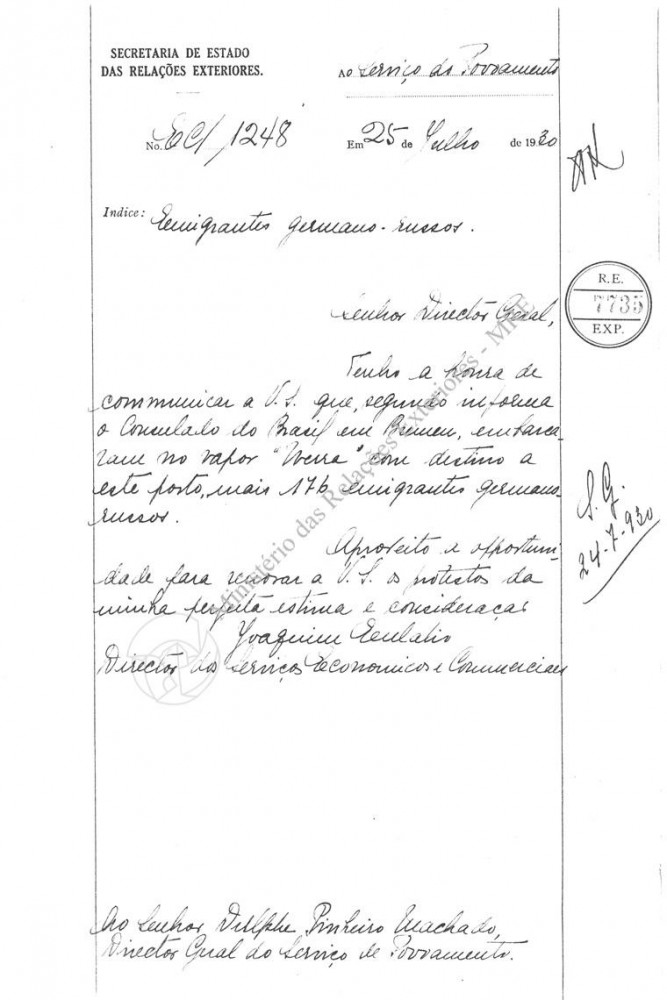 SECRETARIA DE ESTADO
DAS RELAÇÕES EXTERIORES.
AO Serviço do Povoamento
No. EC/1248
Em 25 de Julho de 1930
Indice: Emigrantes germano-russos.
R.E.
7735
EXP.
Senhor Director Geral,
Tenho a honra de
communicar a V.S. que, segundo informa
o Consulado do Brasil em Bremen, embarca-
ram no vapor "Werra" com destino a
este porto, mais 176 emigrantes germano-
russos.
Aproveito a opportuni-
dade para renovar a V.S. os protestos da
minha perfeita estima e consideração
Joaquim Eulalio
Director dos Serviços Economicos e Commerciaes
S.G.
24-7-930
Ao Senhor Dulphe Pinheiro Machado,
Director Geral do Serviço de Povoamento.
Ministério das Relações Exteriores - MRE